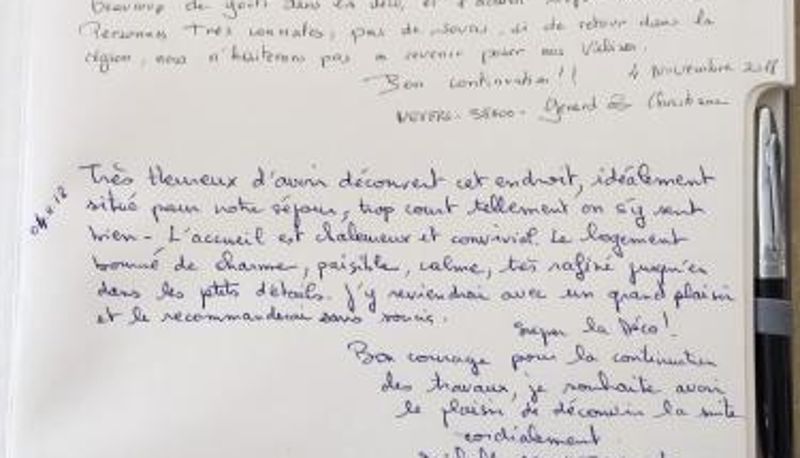 Beaucoup de goût dans la déco, et l'accueil
Personnes très cordiales, pas de soucis, si de retour dans la
région, nous n'hésiterons pas a revenir pour nos visites.
Bon continuation !! 4 Novembre 2018
NEVERS - 58000 - Gerard & Christiane
04.11.18
Très Heureux d'avoir découvert cet endroit, idéalement
situé pour notre séjour, trop court tellement on s'y sent
bien - L'accueil est chaleureux et convivial. Le logement
bourré de charme, paisible, calme, très rafiné jusqu'en
dans les ptits détails. J'y reviendrai avec un grand plaisir
et le recommanderai sans soucis.
Super la Déco !
Bon courage pour la continuation
des travaux, je souhaite avoir
le plaisir de découvrir la suite
cordialement